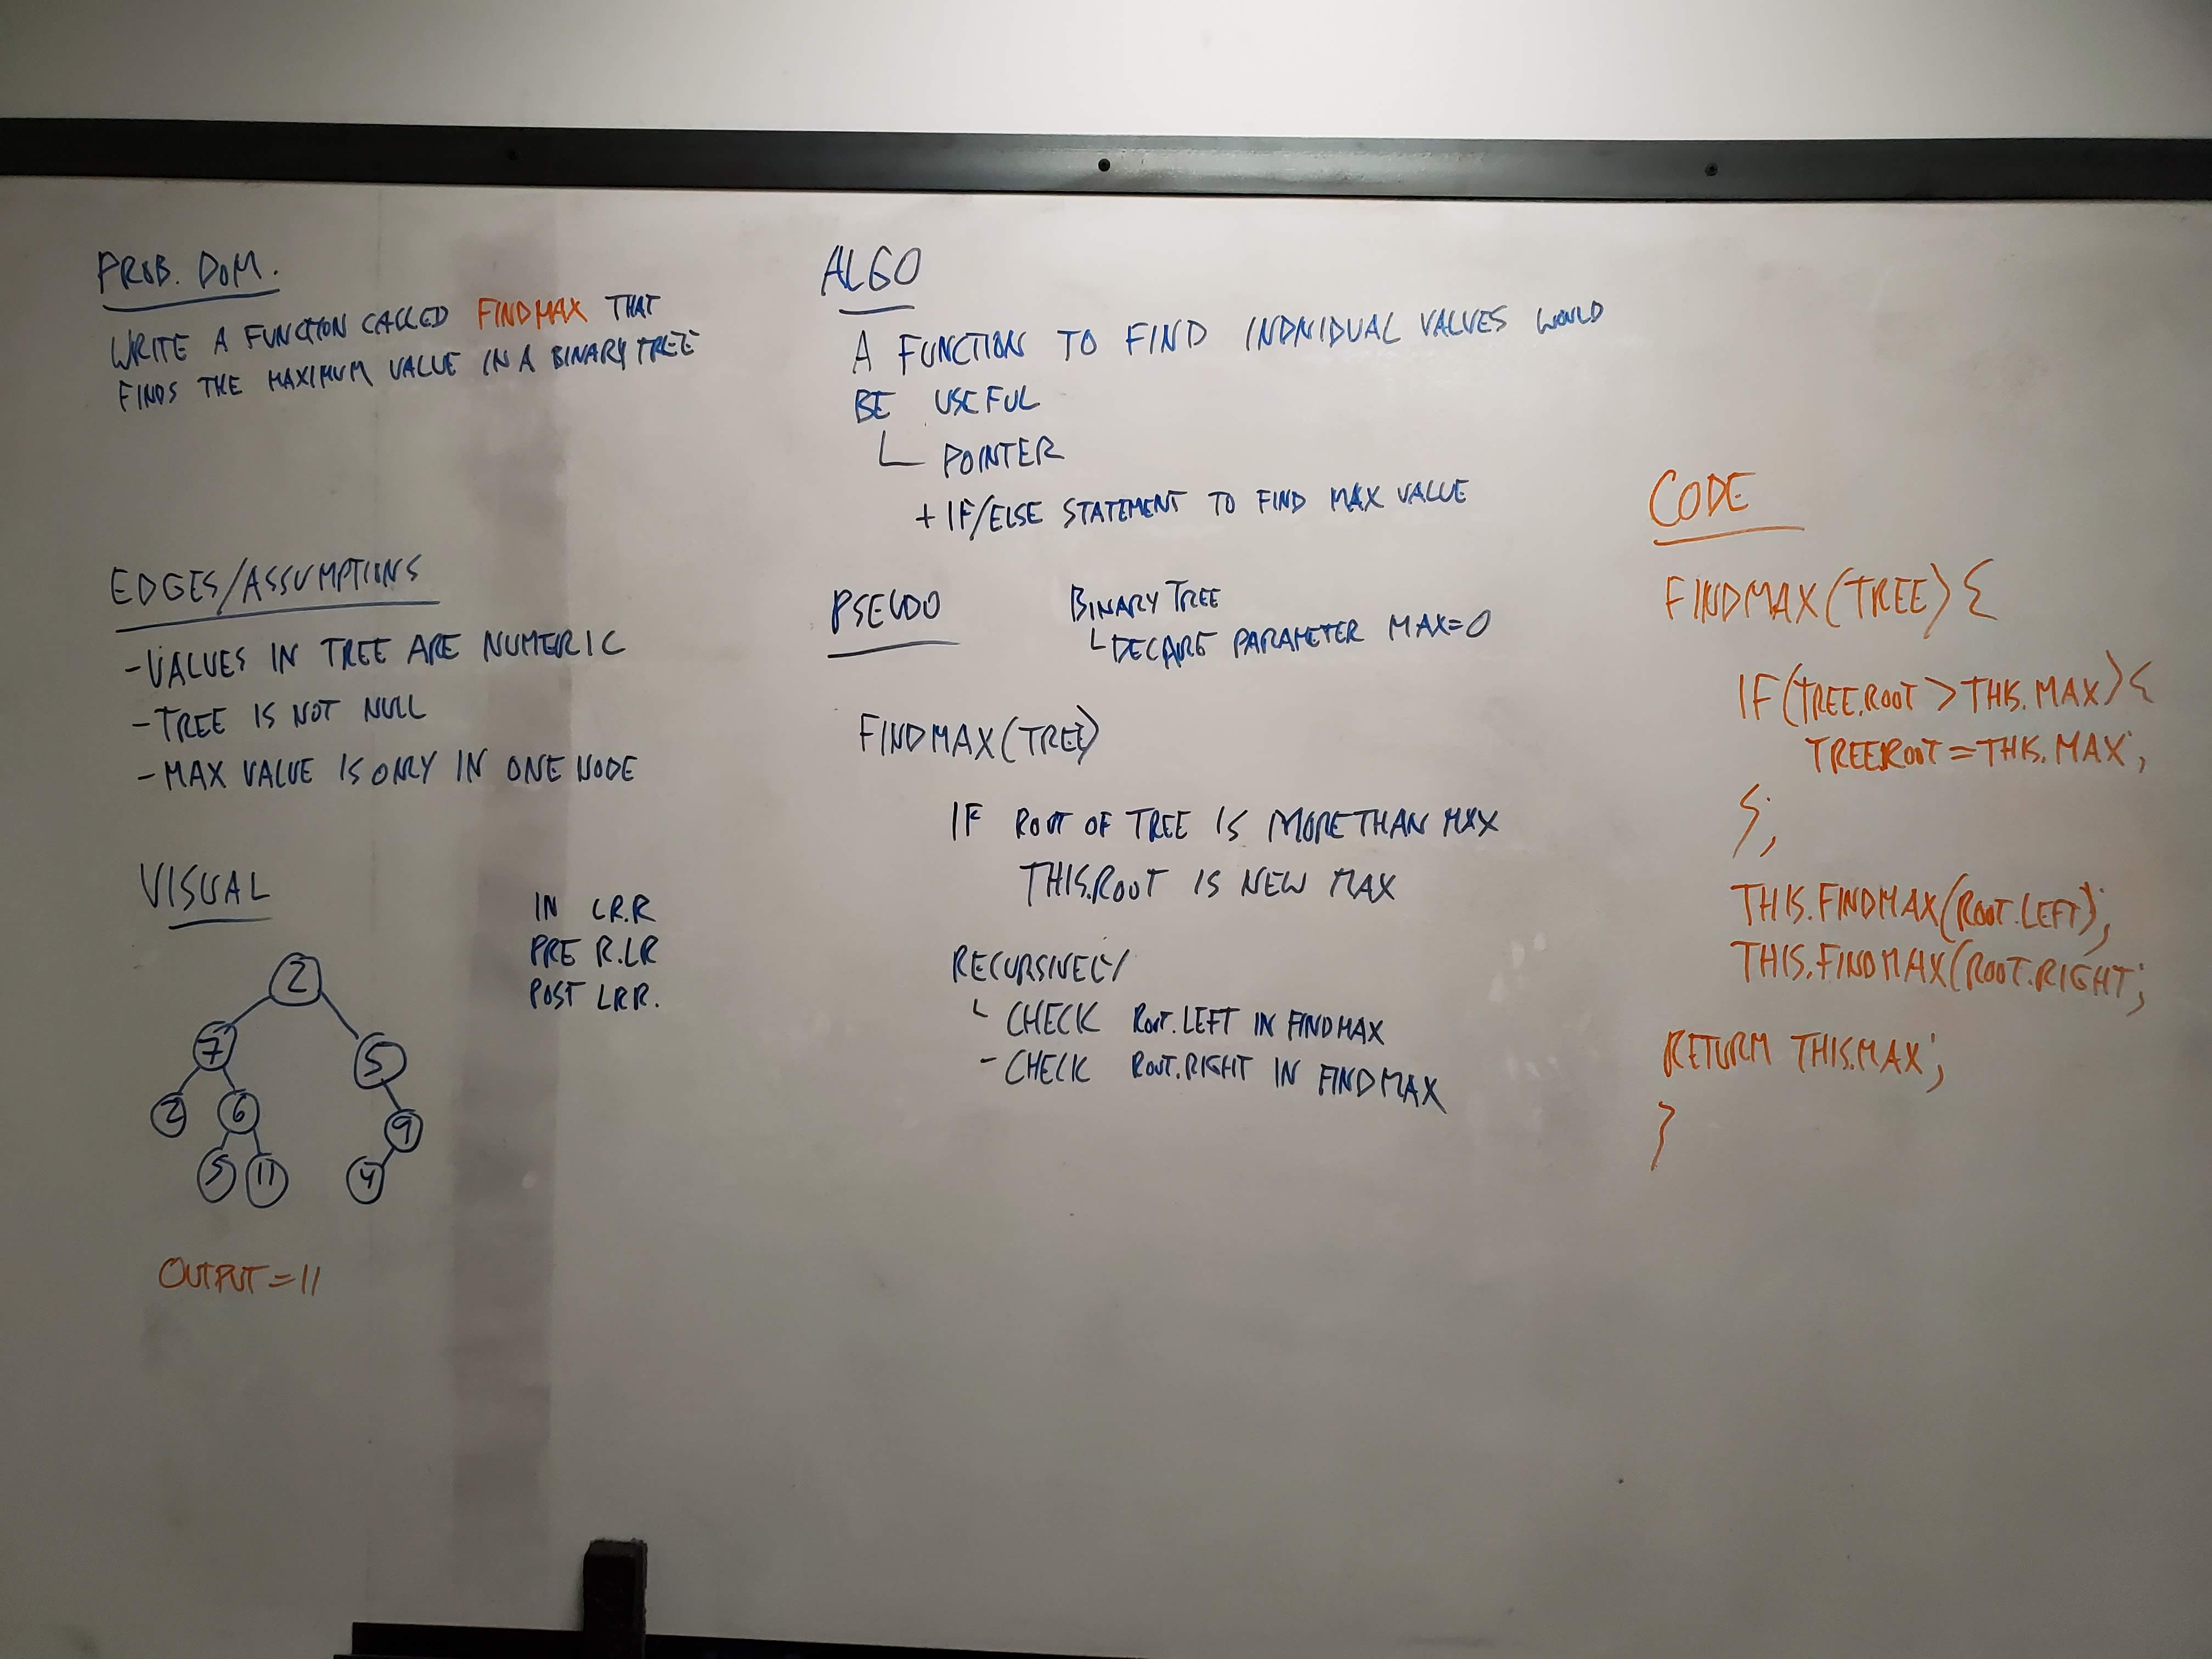 PROB. DOM.
WRITE A FUNCTION CALLED FINDMAX THAT
FINDS THE MAXIMUM VALUE IN A BINARY TREE
EDGES/ASSUMPTIONS
- VALUES IN TREE ARE NUMERIC
- TREE IS NOT NULL
- MAX VALUE IS ONLY IN ONE NODE
VISUAL
IN LR.R
PRE R.LR
POST LRR.
2
7 5
2 6 9
5 11 4
OUTPUT = 11
ALGO
A FUNCTION TO FIND INDIVIDUAL VALUES WOULD
BE USEFUL
POINTER
+ IF/ELSE STATEMENT TO FIND MAX VALUE
PSEUDO
BINARY TREE
DECARE PARAMETER MAX=0
FINDMAX(TREE)
IF ROOT OF TREE IS MORE THAN MAX
THIS.ROOT IS NEW MAX
RECURSIVELY
CHECK ROOT.LEFT IN FINDMAX
- CHECK ROOT.RIGHT IN FINDMAX
CODE
FINDMAX(TREE){
IF(TREE.ROOT > THIS.MAX){
TREE.ROOT = THIS.MAX;
};
THIS.FINDMAX(ROOT.LEFT);
THIS.FINDMAX(ROOT.RIGHT;
RETURN THIS.MAX;
}